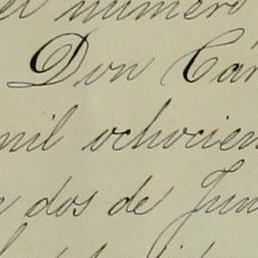 el numero
Don Cár
mil ochocien
dos de Jun